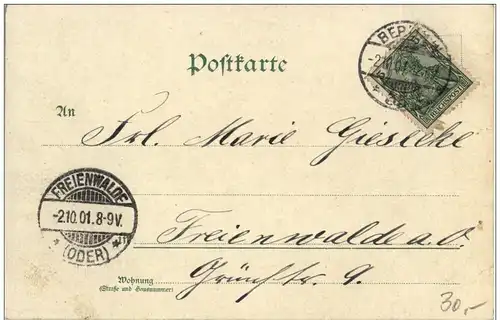 Postkarte
An
Frl. Marie Giesecke
FREIENWALDE
-2.10.01.8-9V.
* (ODER) *
Freienwalde a. O.
Wohnung
(Straße und Hausnummer)
Grünstr. 9.
30,-